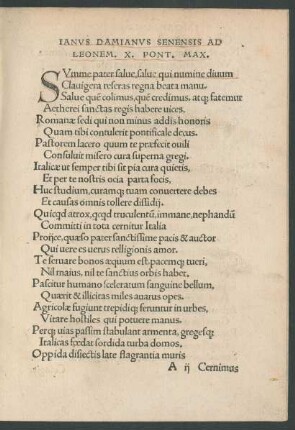 IANVS DAMIANVS SENENSIS AD
LEONEM. X. PONT. MAX.
SVmme pater salue, salue qui numine diuum
Clauigera reseras regna beata manu.
Salue quē colimus, quē credimus, atq; fatemur
Aetherei sanctas regis habere uices.
Romanæ sedi qui non minus addis honoris
Quam tibi contulerit pontificale decus.
Pastorem lacero quum te præfecit ouili
Consuluit misero cura superna gregi.
Italicæ ut semper tibi sit pia cura quietis,
Et per te nostris ocia parta focis,
Huc studium, curamq; tuam conuertere debes
Et causas omnis tollere dissidij.
Quicqd atrox, qcqd truculentū, immane, nephandū
Committi in tota cernitur Italia
Proijce, quæso pater sanctissime pacis & auctor
Qui uere es uerus relligionis amor.
Te seruare bonos æquum est. pacemq; tueri,
Nil maius, nil te sanctius orbis habet.
Pascitur humano sceleratum sanguine bellum,
Quærit & illicitas miles auarus opes.
Agricolæ fugiunt trepidiq; feruntur in urbes,
Vitare hostiles qui potuere manus.
Perq; uias passim stabulant armenta, gregesq;
Italicas fœdat sordida turba domos.
Oppida disiectis late flagrantia muris
A ij Cernimus